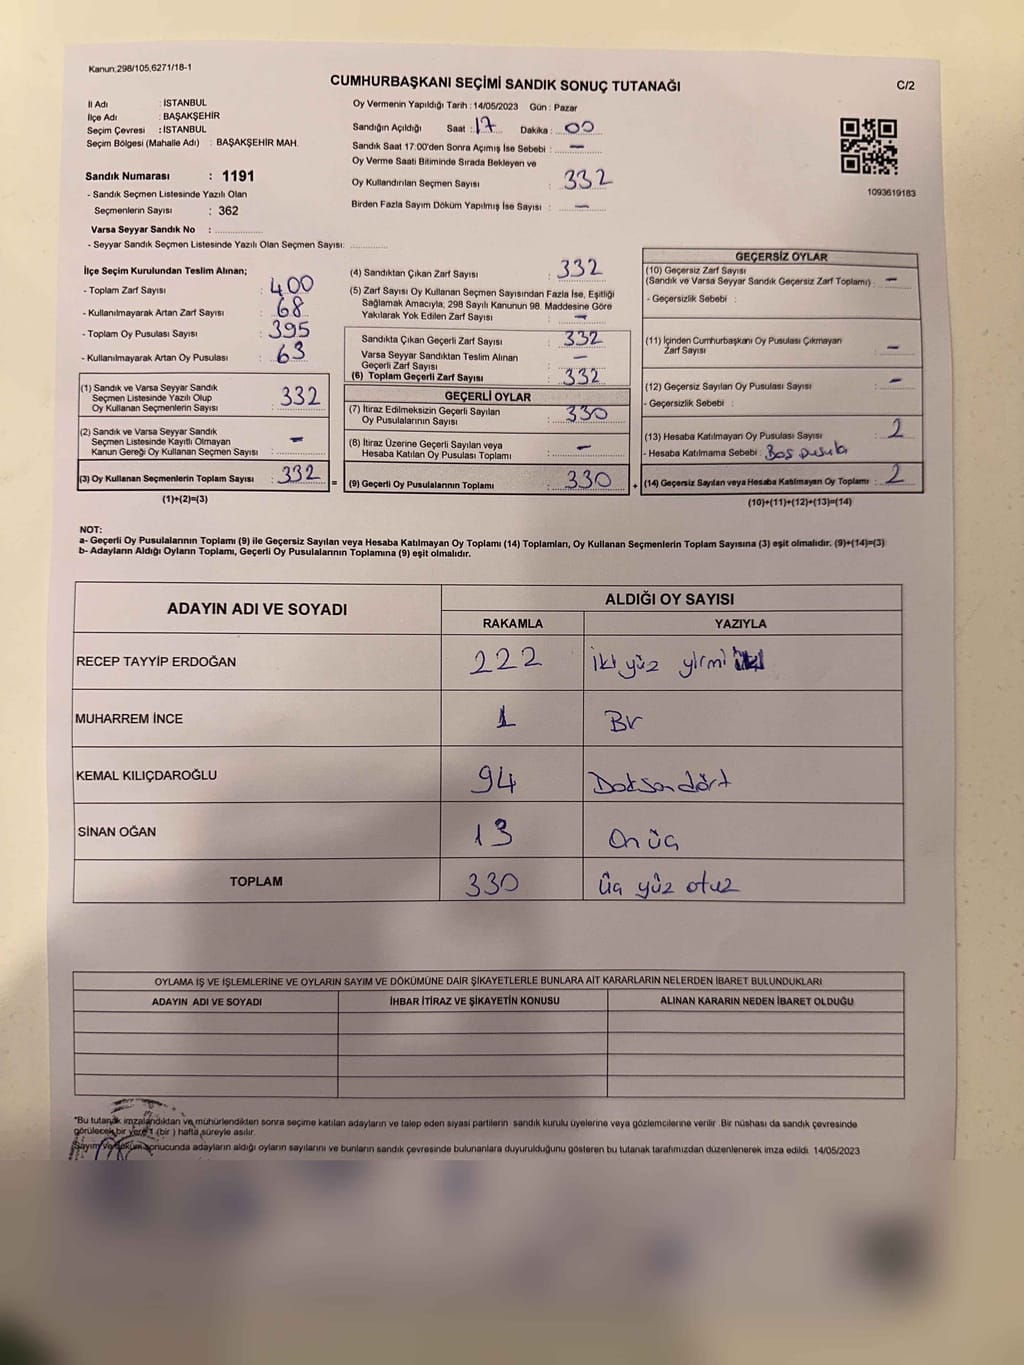 Kanun:298/105,6271/18-1
CUMHURBAŞKANI SEÇİMİ SANDIK SONUÇ TUTANAĞI
C/2
İl Adı : İSTANBUL
İlçe Adı : BAŞAKŞEHİR
Seçim Çevresi : İSTANBUL
Seçim Bölgesi (Mahalle Adı) : BAŞAKŞEHİR MAH.
Sandık Numarası : 1191
- Sandık Seçmen Listesinde Yazılı Olan
Seçmenlerin Sayısı : 362
Varsa Seyyar Sandık No :
- Seyyar Sandık Seçmen Listesinde Yazılı Olan Seçmen Sayısı:
Oy Vermenin Yapıldığı Tarih : 14/05/2023 Gün : Pazar
Sandığın Açıldığı Saat : 17 Dakika : 00
Sandık Saat 17:00'den Sonra Açmış İse Sebebi : —
Oy Verme Saati Bitiminde Sırada Bekleyen ve
Oy Kullandırılan Seçmen Sayısı : 332
Birden Fazla Sayım Döküm Yapılmış İse Sayısı : —
1093619183
İlçe Seçim Kurulundan Teslim Alınan;
- Toplam Zarf Sayısı : 400
- Kullanılmayarak Artan Zarf Sayısı : 68
- Toplam Oy Pusulası Sayısı : 395
- Kullanılmayarak Artan Oy Pusulası : 63
(1) Sandık ve Varsa Seyyar Sandık
Seçmen Listesinde Yazılı Olup
Oy Kullanan Seçmenlerin Sayısı : 332
(2) Sandık ve Varsa Seyyar Sandık
Seçmen Listesinde Kayıtlı Olmayan
Kanun Gereği Oy Kullanan Seçmen Sayısı : —
(3) Oy Kullanan Seçmenlerin Toplam Sayısı : 332
(1)+(2)=(3)
(4) Sandıktan Çıkan Zarf Sayısı : 332
(5) Zarf Sayısı Oy Kullanan Seçmen Sayısından Fazla İse, Eşitliği
Sağlamak Amacıyla, 298 Sayılı Kanunun 98. Maddesine Göre
Yakılarak Yok Edilen Zarf Sayısı : —
Sandıkta Çıkan Geçerli Zarf Sayısı : 332
Varsa Seyyar Sandıktan Teslim Alınan
Geçerli Zarf Sayısı : —
(6) Toplam Geçerli Zarf Sayısı : 332
GEÇERLİ OYLAR
(7) İtiraz Edilmeksizin Geçerli Sayılan
Oy Pusulalarının Sayısı : 330
(8) İtiraz Üzerine Geçerli Sayılan veya
Hesaba Katılan Oy Pusulası Toplamı : —
=
(9) Geçerli Oy Pusulalarının Toplamı : 330
+
GEÇERSİZ OYLAR
(10) Geçersiz Zarf Sayısı
(Sandık ve Varsa Seyyar Sandık Geçersiz Zarf Toplamı) : —
- Geçersizlik Sebebi :
(11) İçinden Cumhurbaşkanı Oy Pusulası Çıkmayan
Zarf Sayısı : —
(12) Geçersiz Sayılan Oy Pusulası Sayısı : —
- Geçersizlik Sebebi :
(13) Hesaba Katılmayan Oy Pusulası Sayısı : 2
- Hesaba Katılmama Sebebi : Boş pusula
(14) Geçersiz Sayılan veya Hesaba Katılmayan Oy Toplamı : 2
(10)+(11)+(12)+(13)=(14)
NOT:
a- Geçerli Oy Pusulalarının Toplamı (9) ile Geçersiz Sayılan veya Hesaba Katılmayan Oy Toplamı (14) Toplamları, Oy Kullanan Seçmenlerin Toplam Sayısına (3) eşit olmalıdır. (9)+(14)=(3)
b- Adayların Aldığı Oyların Toplamı, Geçerli Oy Pusulalarının Toplamına (9) eşit olmalıdır.
ADAYIN ADI VE SOYADI ALDIĞI OY SAYISI
RAKAMLA YAZIYLA
RECEP TAYYİP ERDOĞAN 222 iki yüz yirmi iki
MUHARREM İNCE 1 Bir
KEMAL KILIÇDAROĞLU 94 Doksan dört
SİNAN OĞAN 13 On üç
TOPLAM 330 üç yüz otuz
OYLAMA İŞ VE İŞLEMLERİNE VE OYLARIN SAYIM VE DÖKÜMÜNE DAİR ŞİKAYETLERLE BUNLARA AİT KARARLARIN NELERDEN İBARET BULUNDUKLARI
ADAYIN ADI VE SOYADI İHBAR İTİRAZ VE ŞİKAYETİN KONUSU ALINAN KARARIN NEDEN İBARET OLDUĞU
*Bu tutanak imzalandıktan ve mühürlendikten sonra seçime katılan adayların ve talep eden siyasi partilerin sandık kurulu üyelerine veya gözlemcilerine verilir. Bir nüshası da sandık çevresinde
görülecek bir yere 1 (bir) hafta süreyle asılır.
Sayım ve döküm sonucunda adayların aldığı oyların sayılarını ve bunların sandık çevresinde bulunanlara duyurulduğunu gösteren bu tutanak tarafımızdan düzenlenerek imza edildi. 14/05/2023